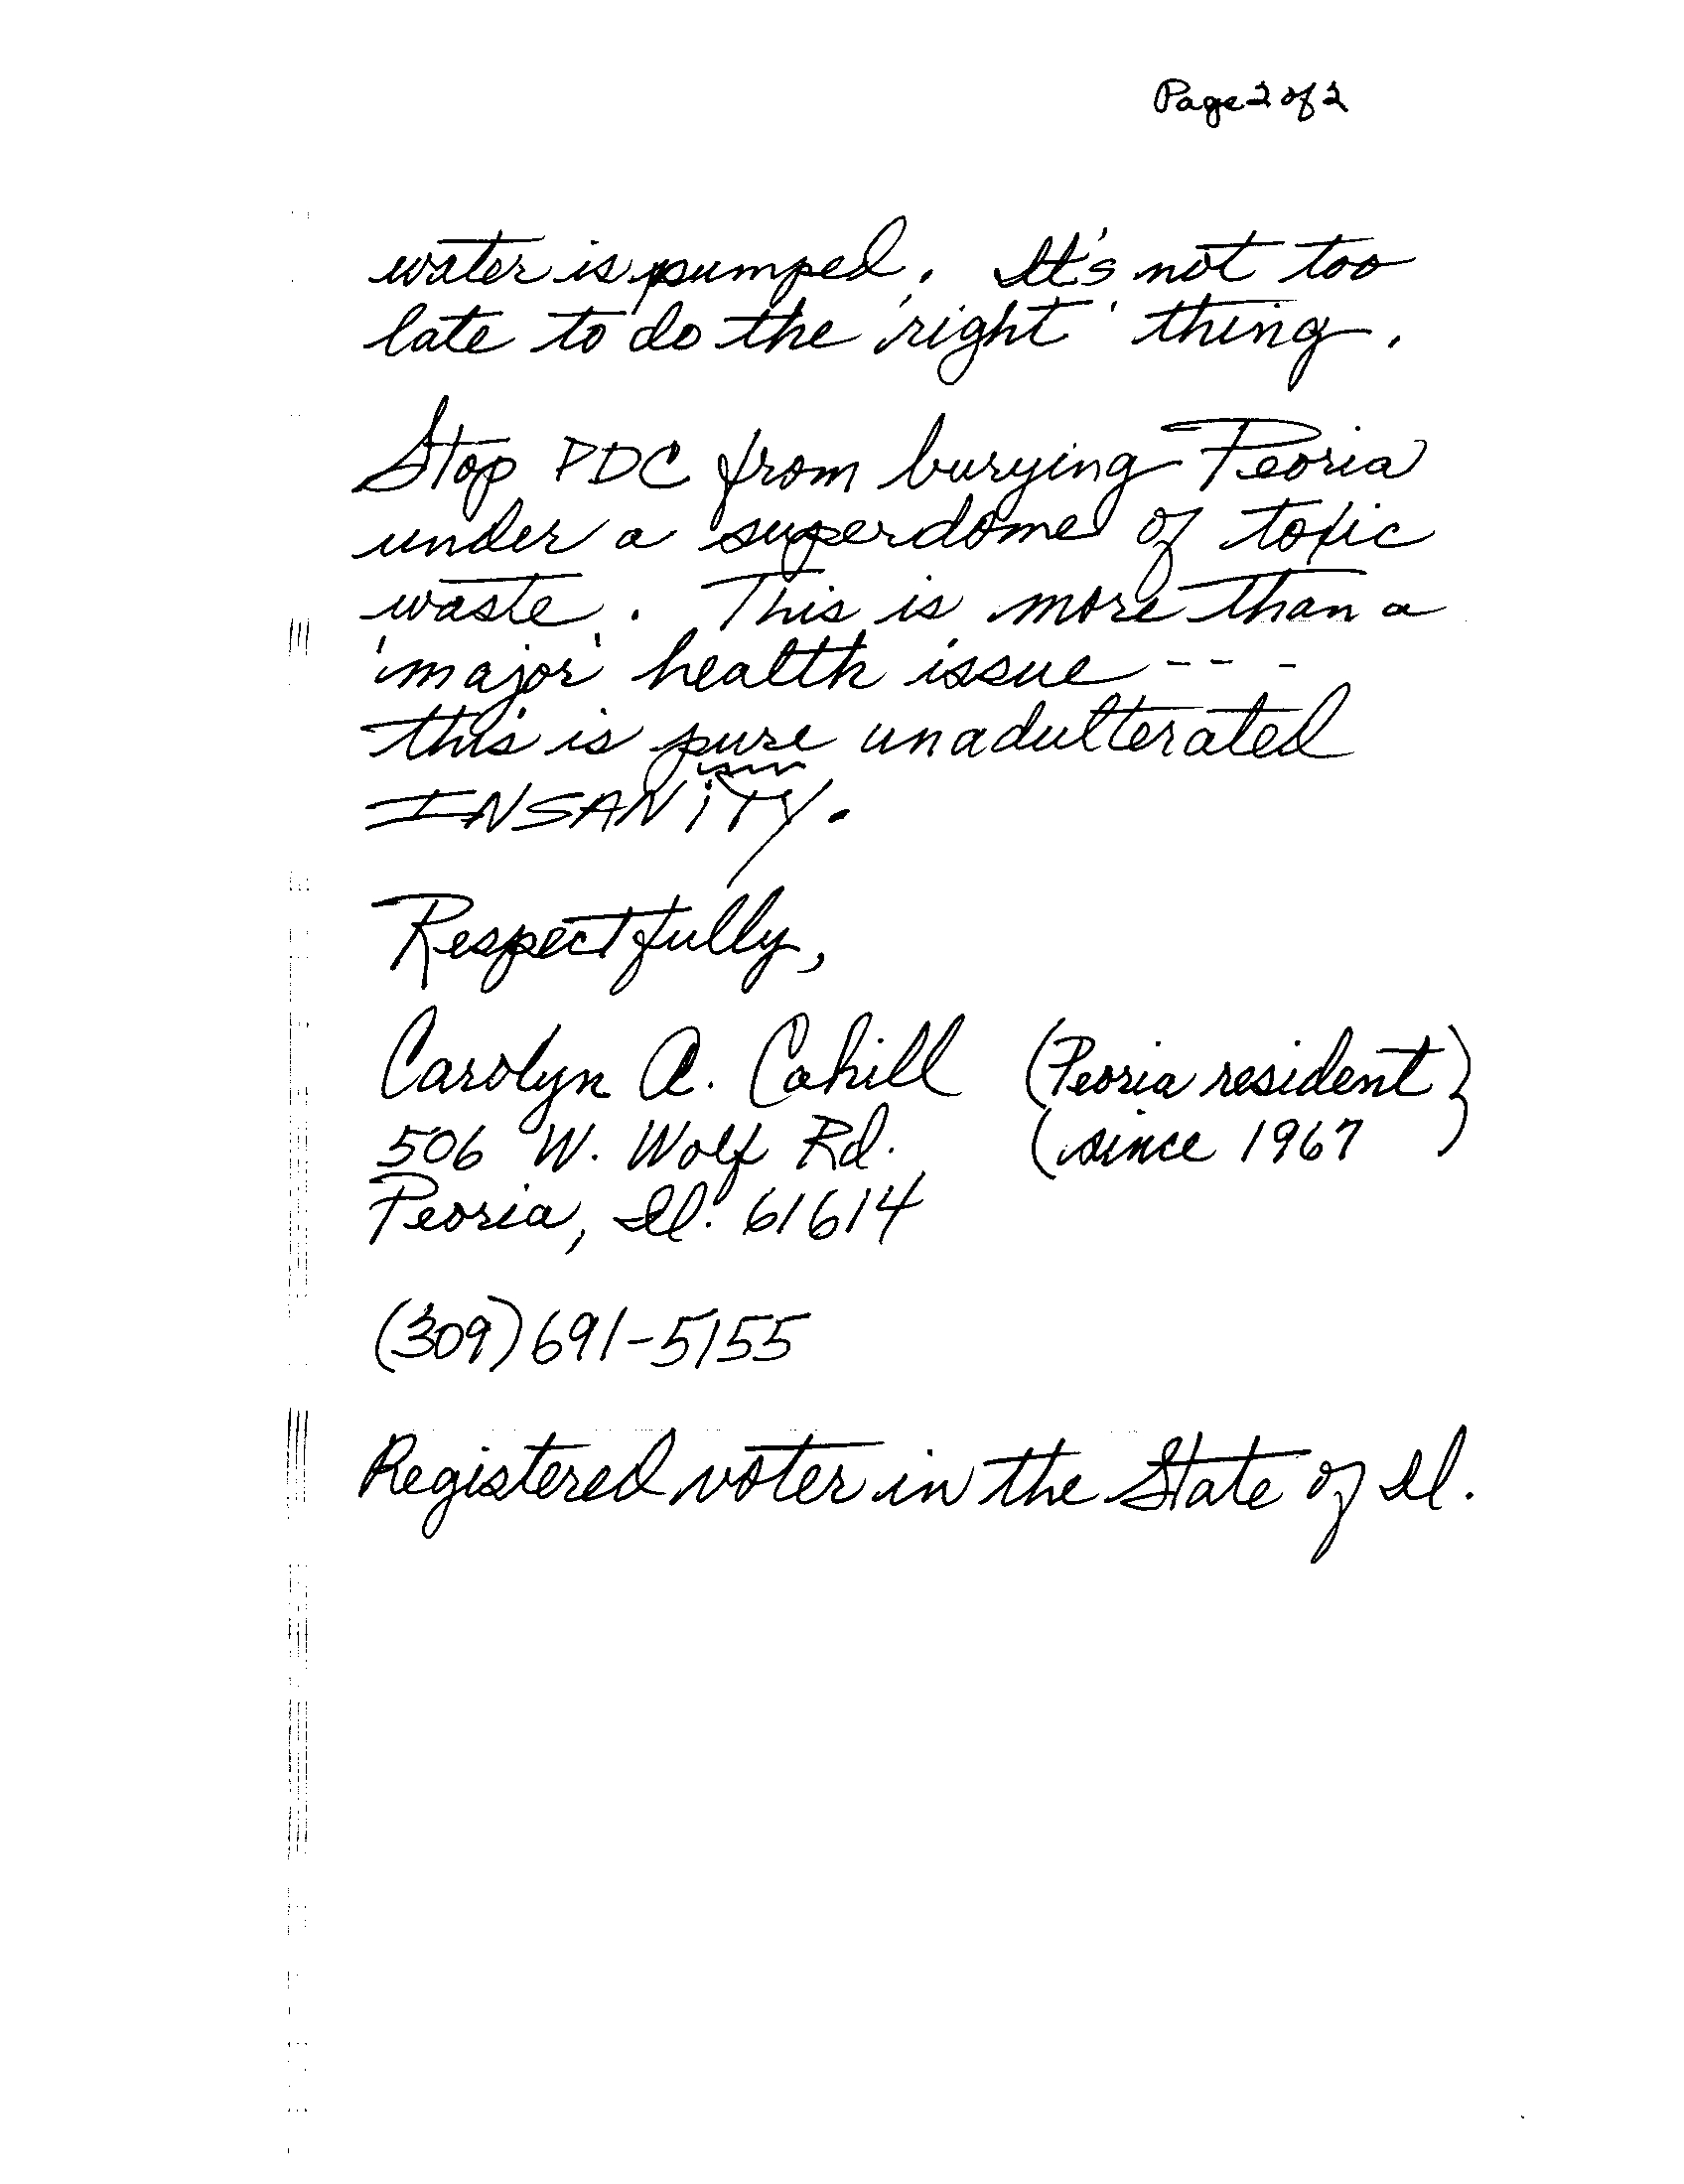 Page 2 of 2
water is pumped. It's not too
late to do the 'right' thing.
Stop PDC from burying Peoria
under a superdome of toxic
waste. This is more than a
'major' health issue - - -
this is pure unadulterated
INSANiTY.
Respectfully,
Carolyn A. Cahill (Peoria resident)
506 W. Wolf Rd. (since 1967)
Peoria, Il. 61614
(309) 691-5155
Registered voter in the State of Il.